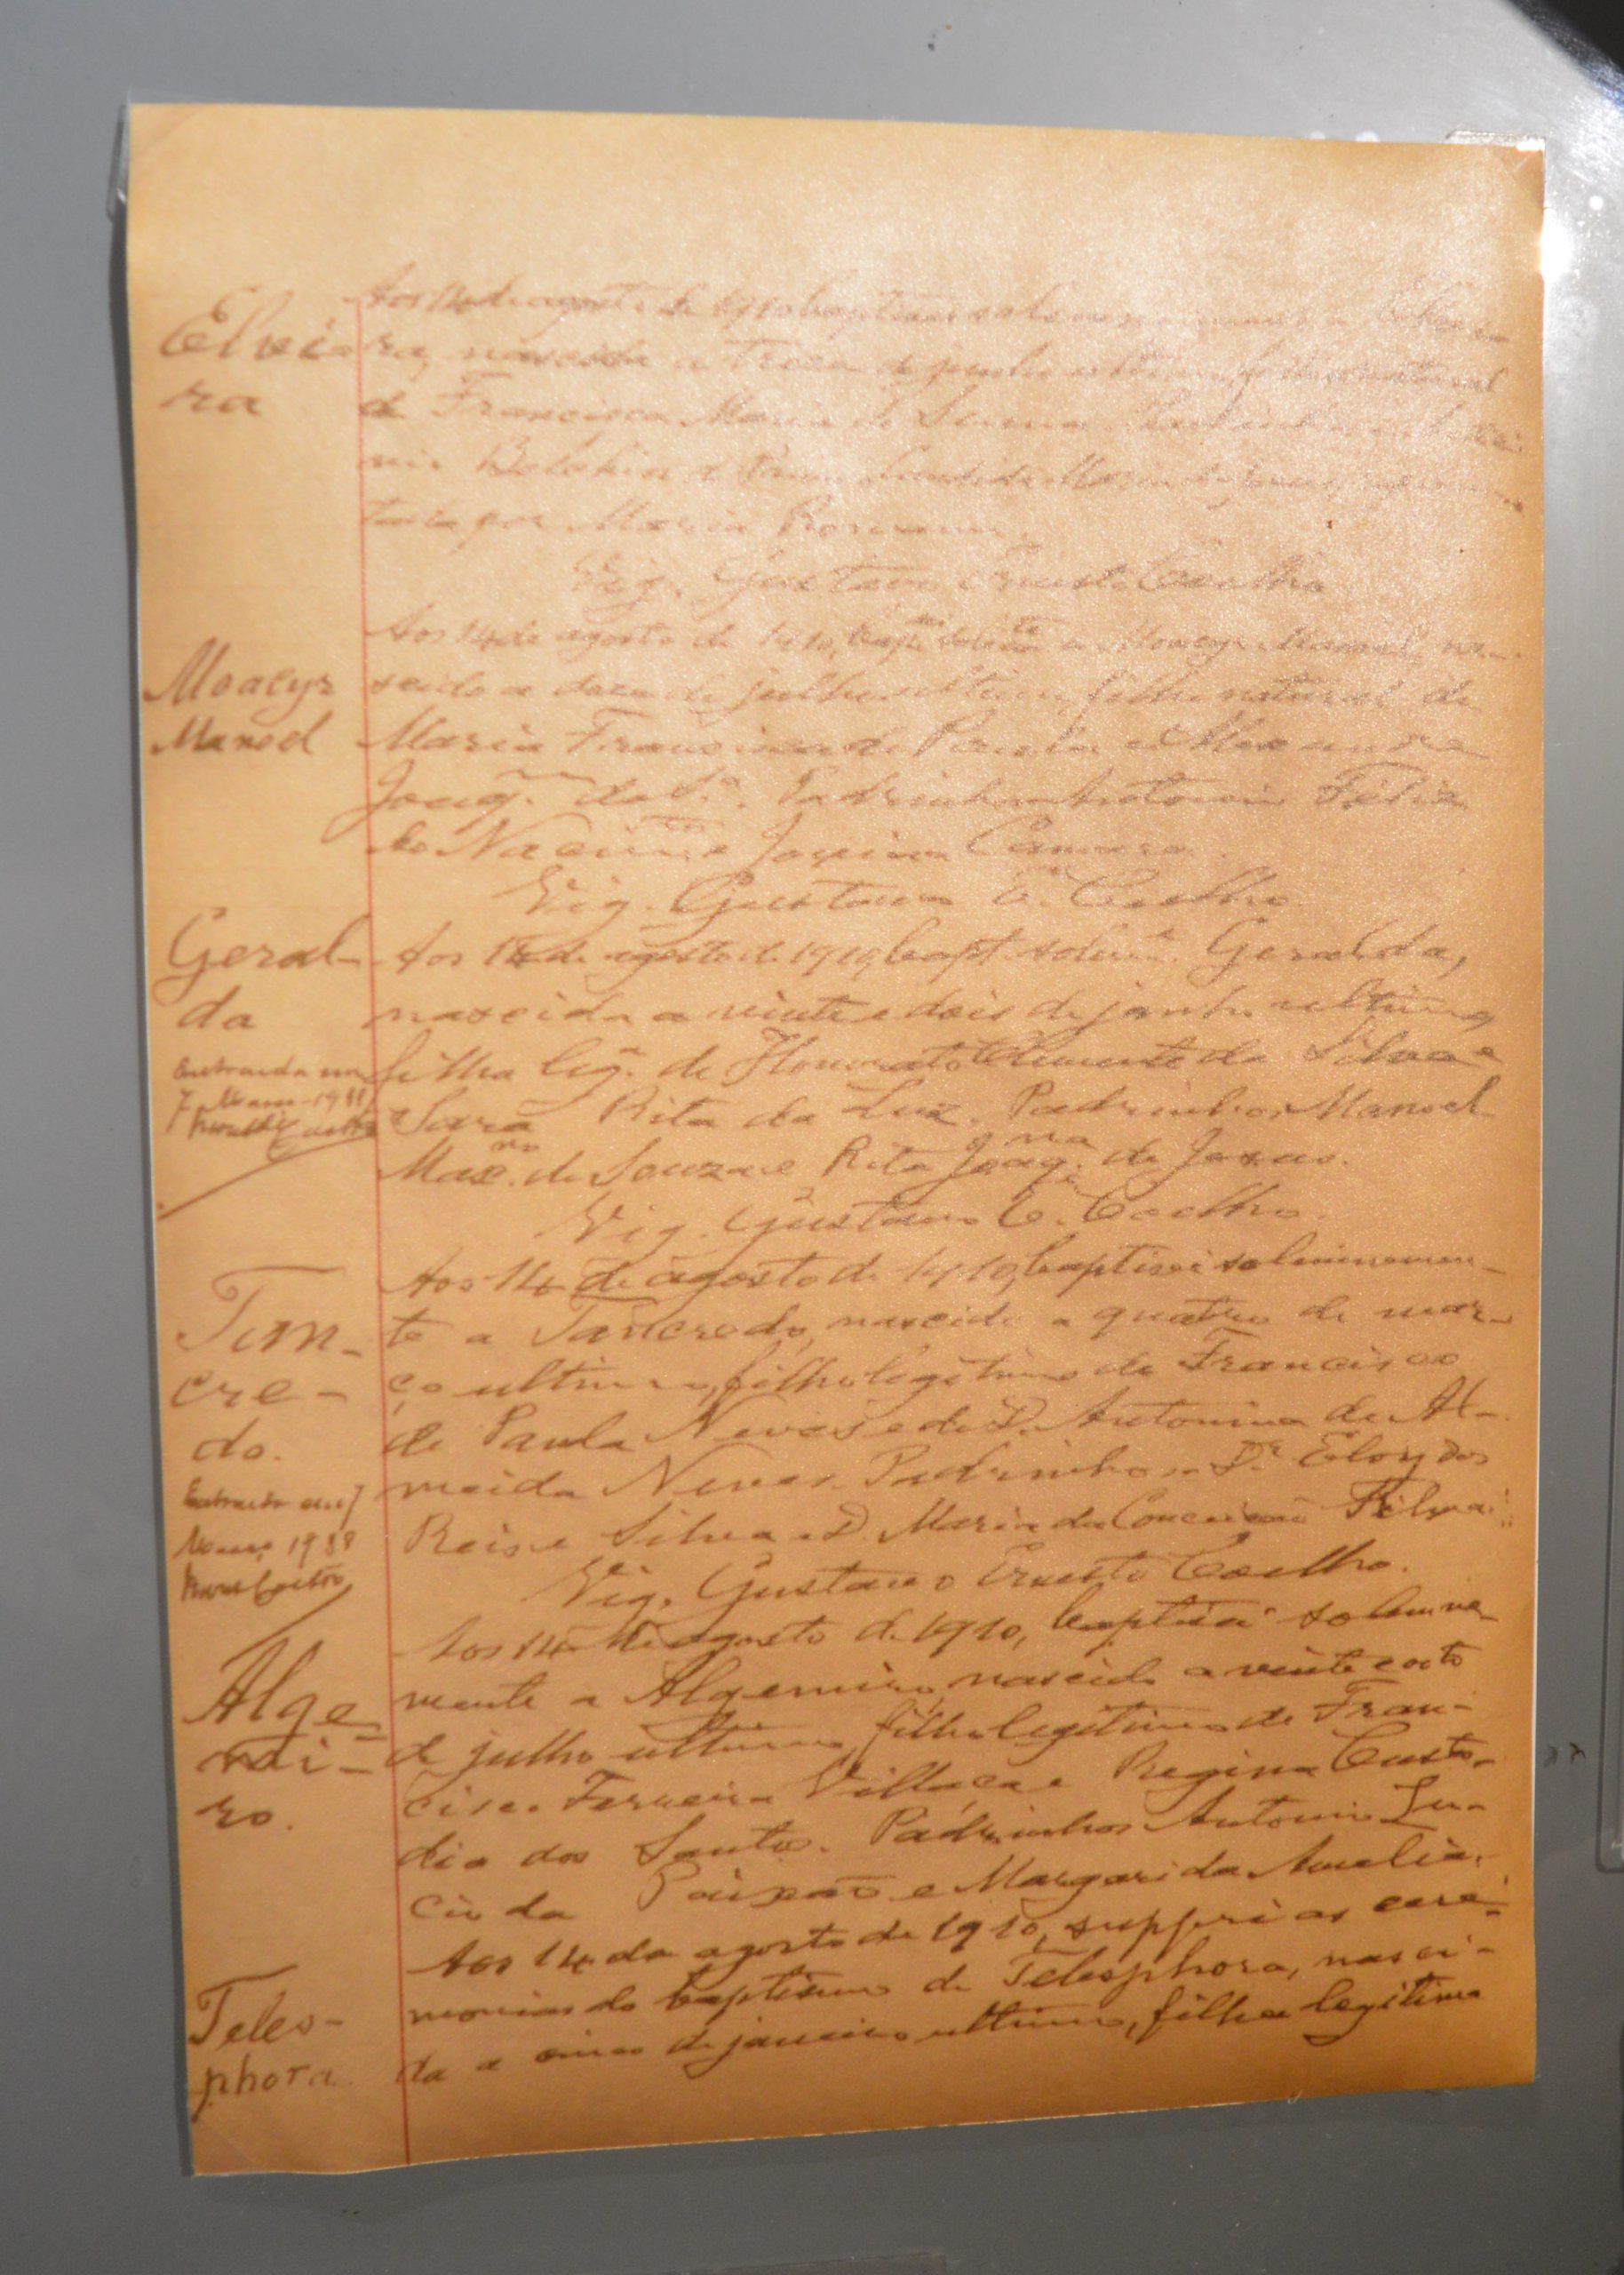 Elvi
ra
Aos 14 de agosto de 1910 baptisei
ra, nascida a treze de julho ultimo, filha natural
de Francisca Maria de
tada por Maria
Vig. Gustavo Ernesto Coelho
Moacyr
Manoel
Aos 14 de agosto de 1910, bapt. a Moacyr Manoel, na-
scido a doze de julho ultimo, filho natural de
Maria Francisca de Paula e Alexandre
Joaq. da S.ª. Padrinhos Antonio Felix
do Nacim.to e Joaquina
Vig. Gustavo E. Coelho
Geral-
da
Extraida em
7 Março 1988
Aos 14 de agosto de 1910, bapt. solem. Geralda,
nascida a vinte e dois de junho ultimo,
filha leg. de Honorato Clemente da Silva e
Sara Rita da Luz. Padrinhos Manoel
Max.no de Souza e Rita Joaq.na de Jesus.
Vig. Gustavo E. Coelho.
Tan-
cre-
do.
Extraido em 7
Março 1988
Aos 14 de agosto de 1910, baptisei solemnemen-
te a Tancredo, nascido a quatro de mar-
ço ultimo, filho legitimo de Francisco
de Paula Neves e de D. Antonina de Al-
meida Neves. Padrinhos Dr. Eloy dos
Reis e Silva e D. Maria da Conceição Silva.
Vig. Gustavo Ernesto Coelho.
Alge-
mi-
ro.
Aos 14 de agosto de 1910, baptisei solemne-
mente a Algemiro, nascido a vinte e oito
de julho ultimo, filho legitimo de Fran-
cisco Ferreira Villaça e Regina Custo-
dia dos Santos. Padrinhos Antonio Lu-
cio da Paixão e Margarida Amelia.
Teles-
phora
Aos 14 de agosto de 1910, suppri as cere-
monias do baptismo de Telesphora, nasci-
da a cinco de janeiro ultimo, filha legitima